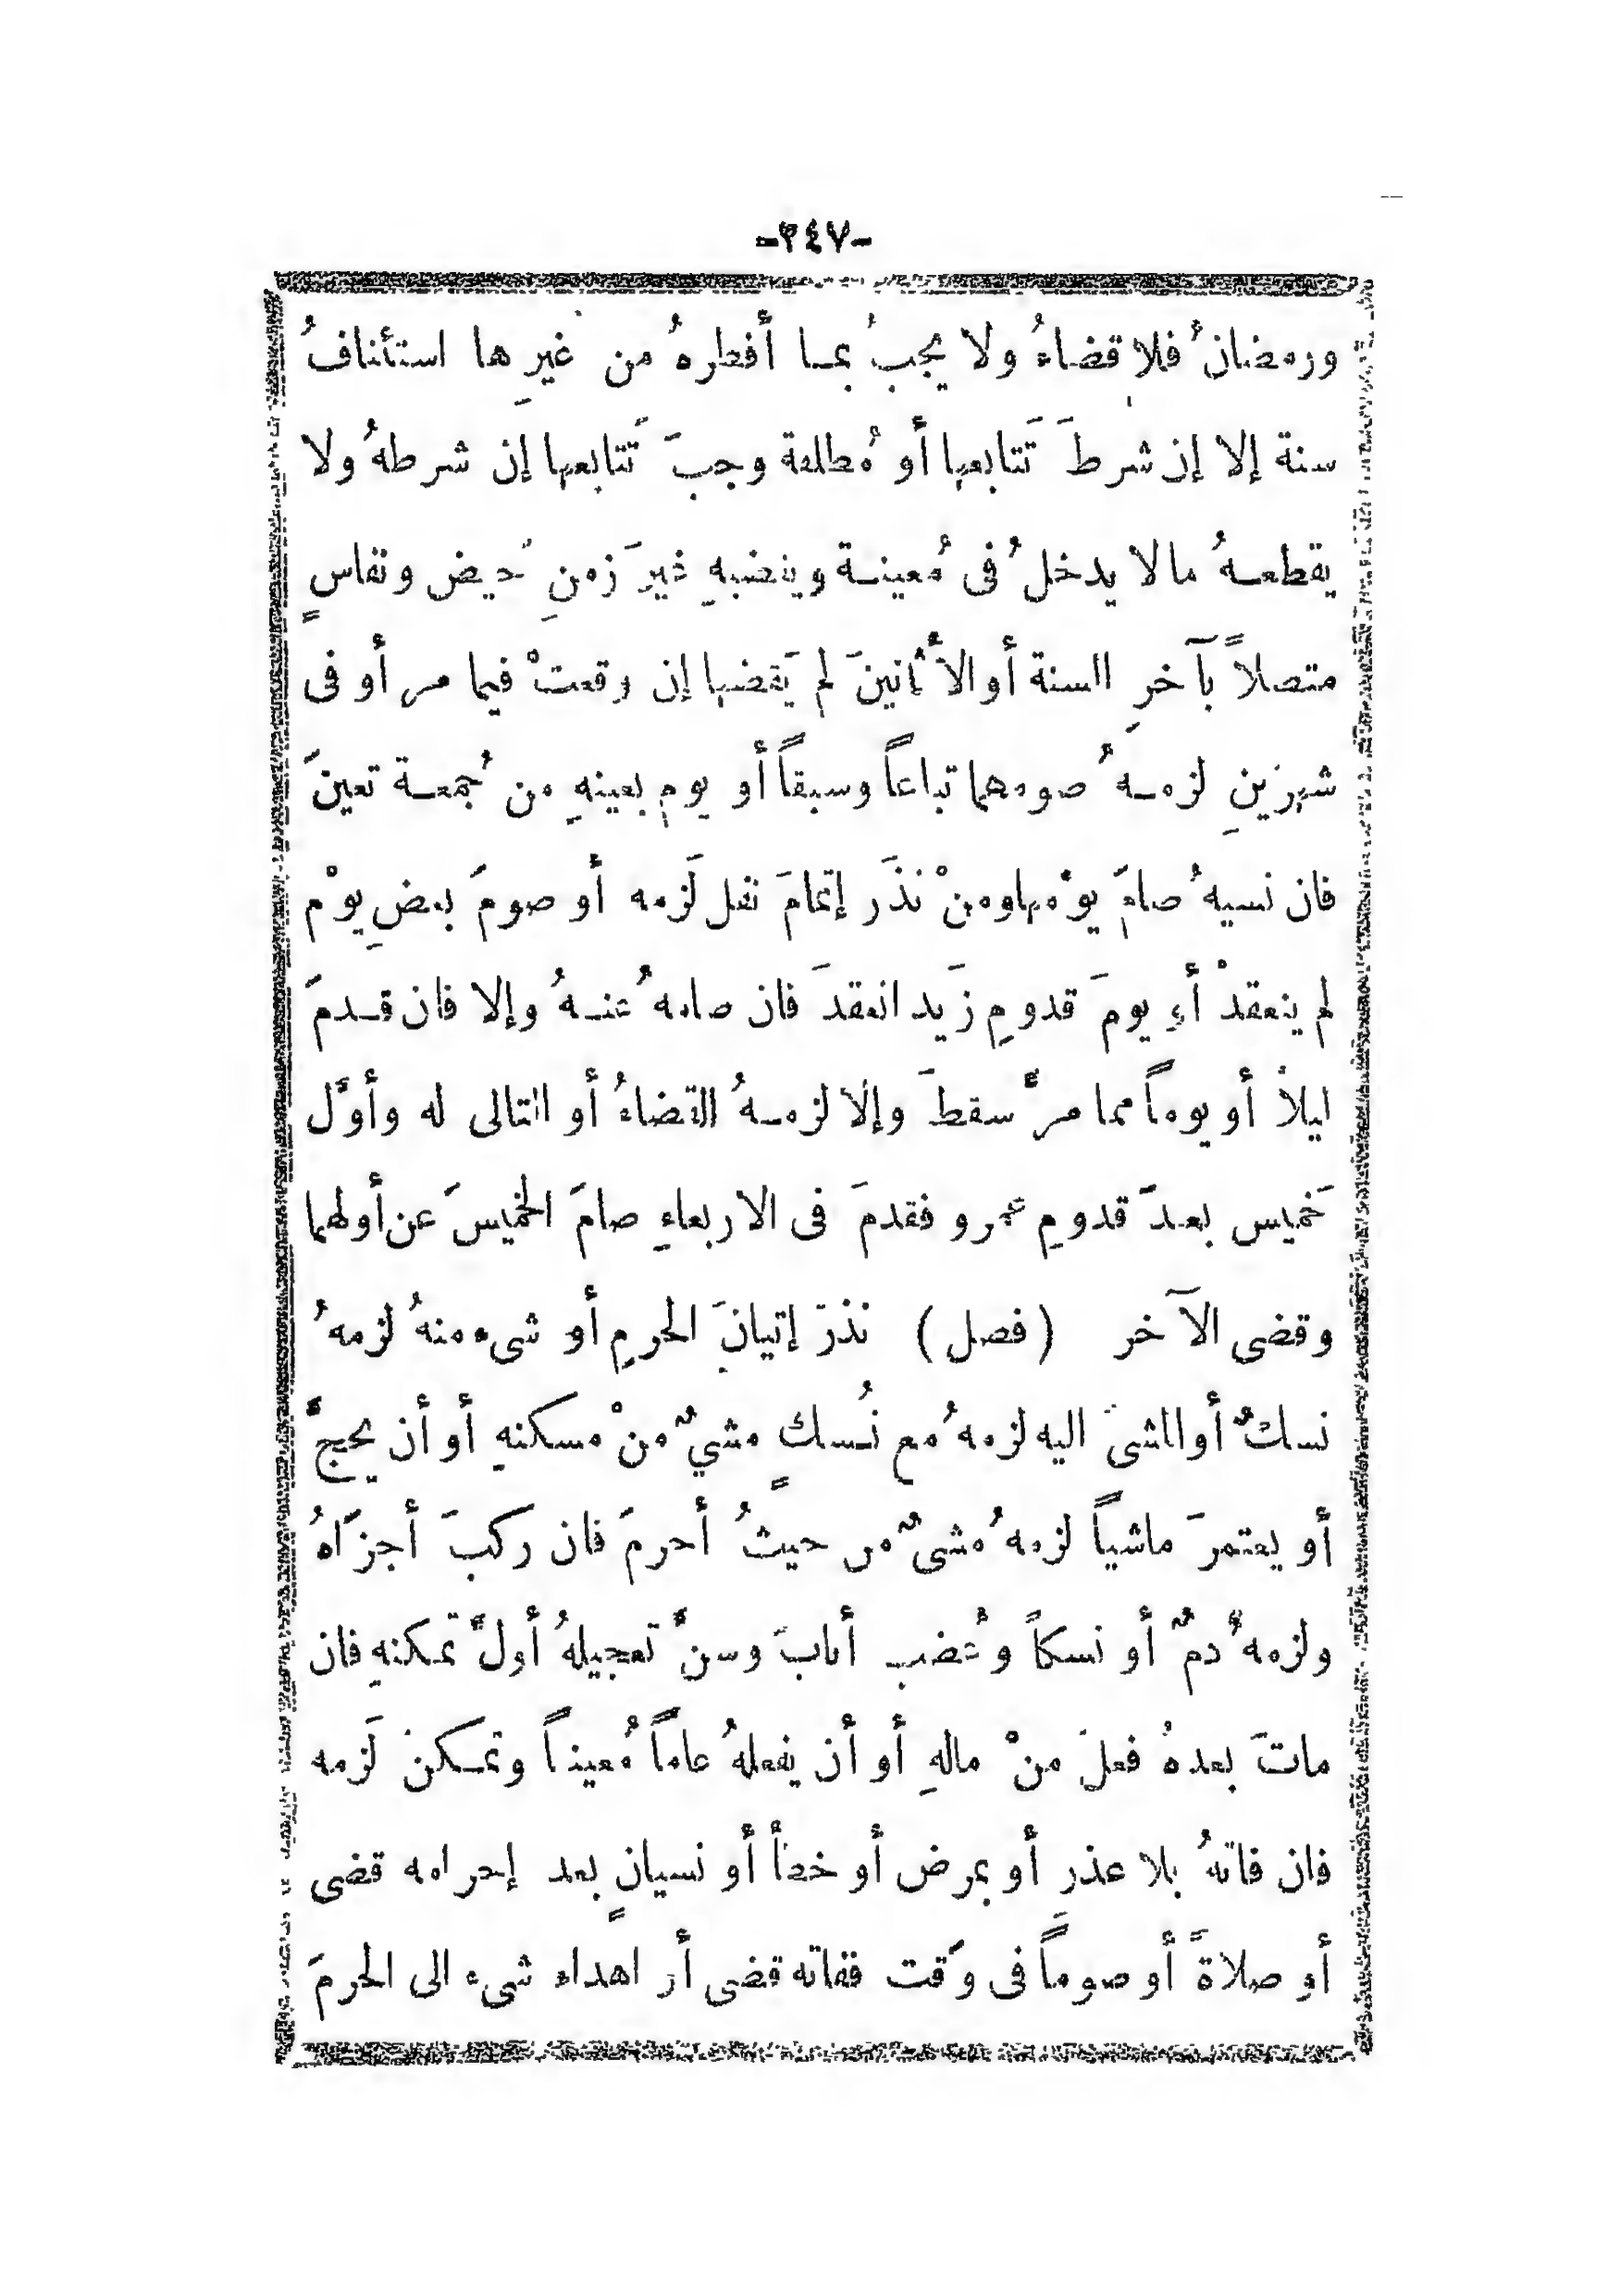 -٣٤٧-
ورمضانُ فلا قضاءُ ولا يجبُ بمـا أفطرهُ من غيرِها استئنافُ
سنة إلا إن شرطَ تَتابعها أو مُطلقة وجبَ تَتابعها إن شرطهُ ولا
يقطعـهُ مالا يدخلُ فى مُعينـة ويقضيهِ غيرَ زمنِ حَيض ونفاسٍ
متصلاً بآخرِ السنة أو الأَثانينَ لم يَقضها إن وقعتْ فيما مر أو فى
شهرَينِ لزمـهُ صومهما تباعاً وسبقاً أو يومٍ بعينهِ من جُمعـة تعينَ
فان نسيهُ صامَ يوْمها ومنْ نذَر إتمامَ نفل لَزمه أو صومَ بعضِ يوْم
لم ينعقدْ أو يومَ قدومِ زَيد انعقدَ فان صامهُ عنـهُ وإلا فان قـدمَ
ليلاً أو يوماً مما مرَّ سقطَ وإلا لزمـهُ القضاءُ أو التالى له وأوَّل
خَميس بعدَ قدومِ عمرو فقدمَ فى الاربعاءِ صامَ الخميسَ عن أولهما
وقضى الآخر ( فصل ) نذرَ إتيانَ الحرمِ أو شىء منهُ لزمهُ
نسكٌ أو المشىَ اليه لزمهُ مع نُسكٍ مشيٌ منْ مسكنهِ أو أن يحجَّ
أو يعتمرَ ماشياً لزمهُ مشىٌ من حيثُ أحرمَ فان ركبَ أجزَاهُ
ولزمهُ دمٌ أو نسكاً وعُضب أنابَ وسنَّ تعجيلهُ أولَّ تمَكنهِ فان
ماتَ بعدهُ فعلَ منْ مالهِ أو أن يفعلهُ عاماً مُعيناً وتمـكنَ لَزمه
فان فاتهُ بلا عذرٍ أو بمرض أو خطأ أو نسيانٍ بعد إحرامه قضى
أو صلاةً أو صوماً فى وَقت ففاته قضى أو اهداء شىء الى الحرمَ